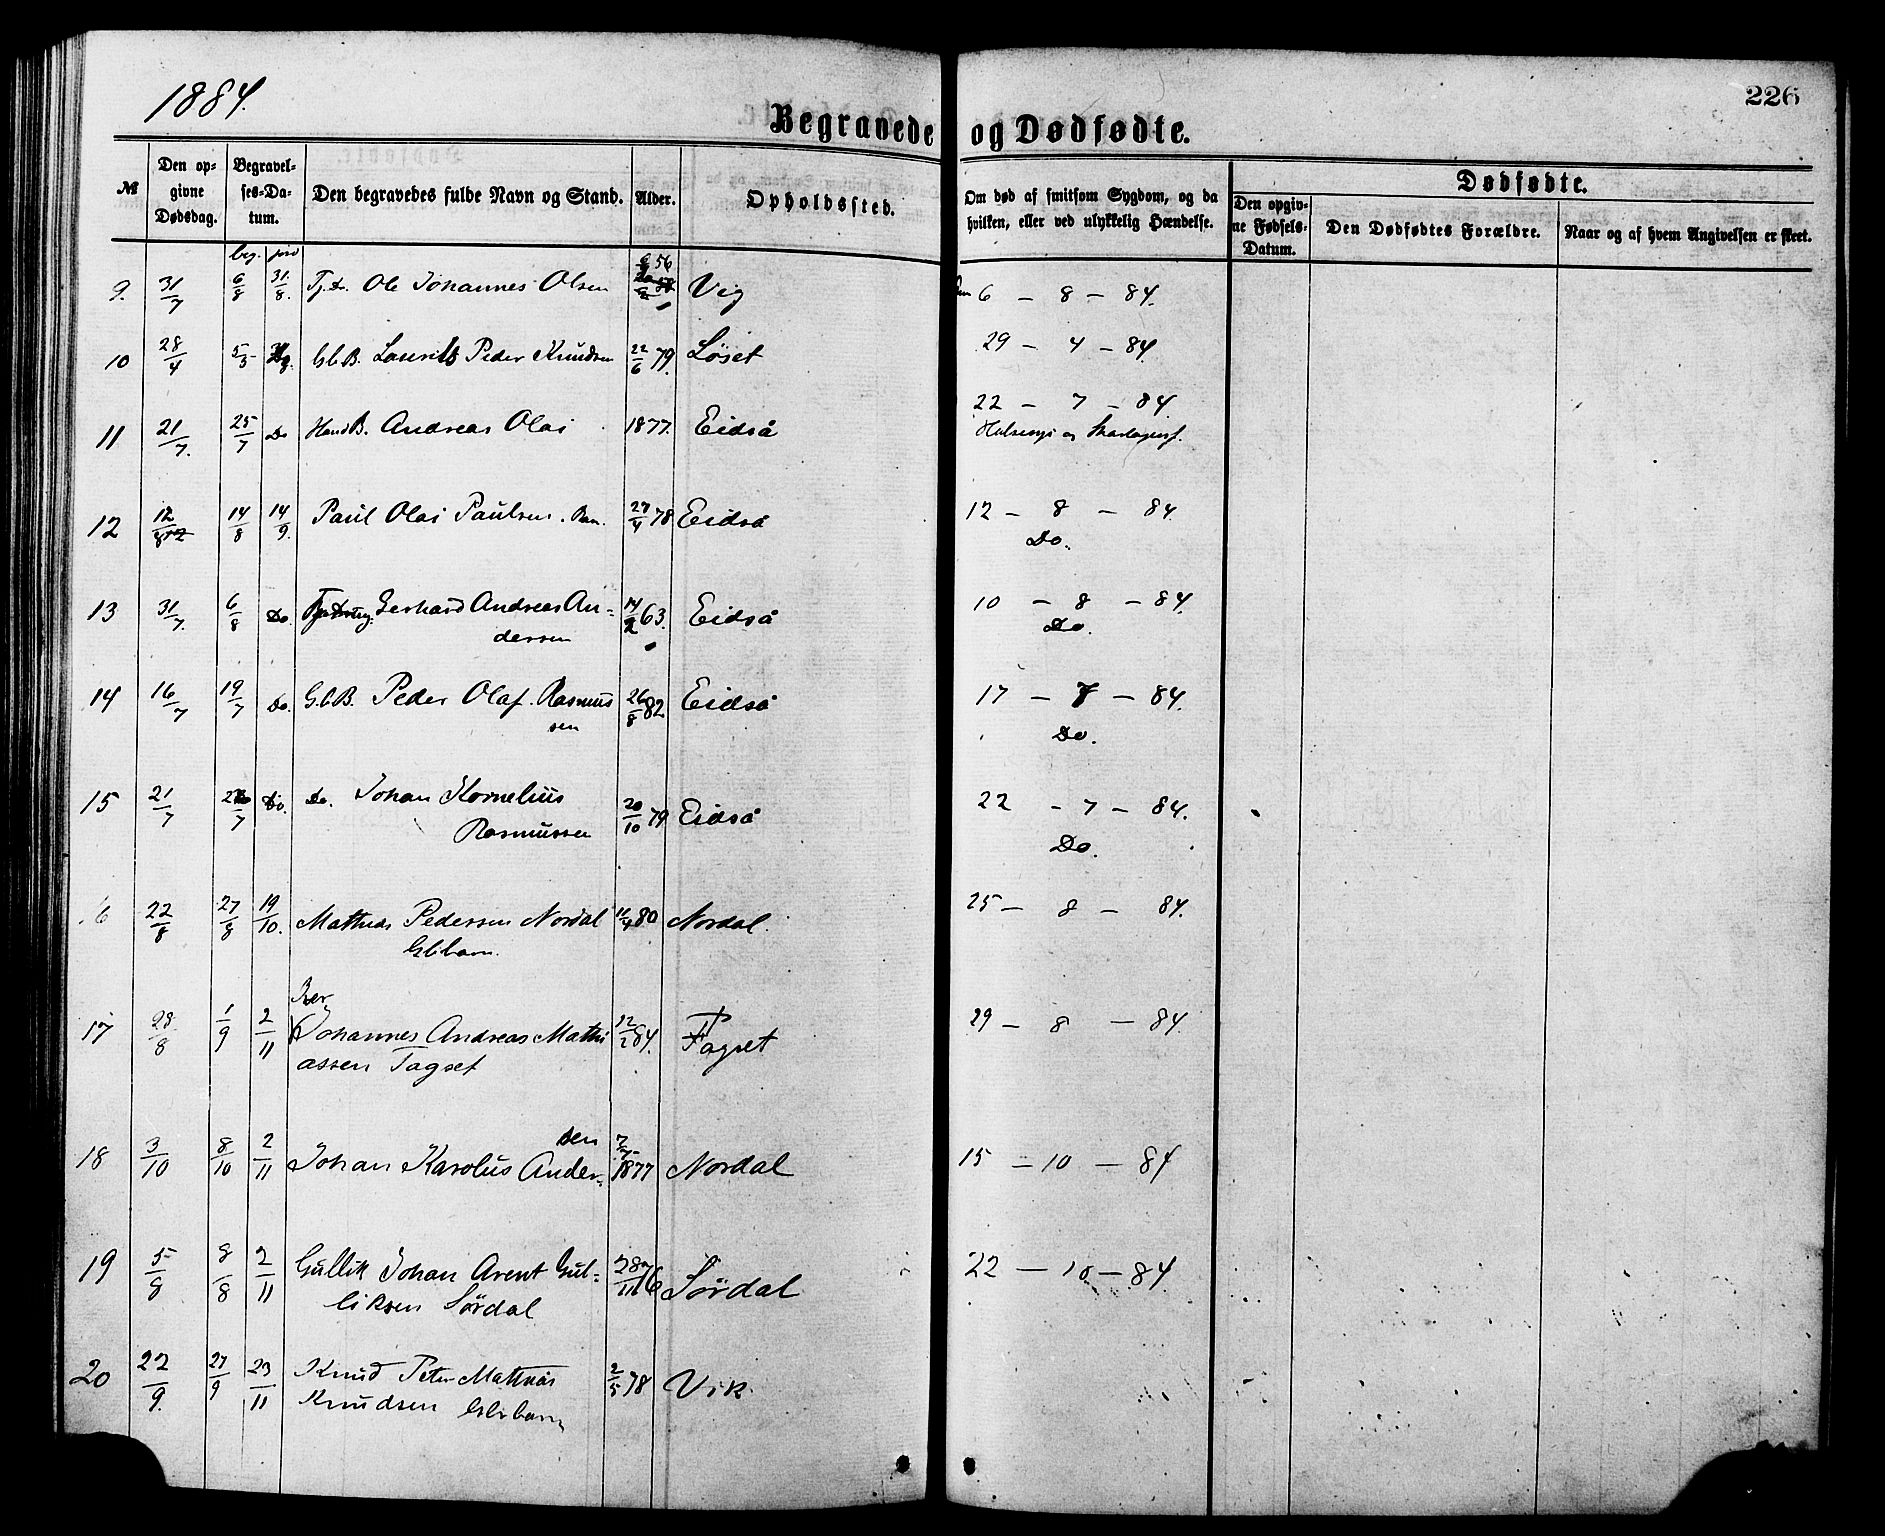 1884.
226
Begravede og Dødfødte.
№ Den opgivne Dødsdag. Begravelses-Datum. Den begravedes fulde Navn og Stand. Alder. Opholdssted. Om død af smitsom Sygdom, og da hvilken, eller ved ulykkelig Hændelse. Dødfødte.
Den opgivne Fødsels-Datum. Den Dødfødtes Forældre. Naar og af hvem Angivelsen er skeet.
beg. jord
9. 31/7 6/8 31/8. Ole Johannes Olsen 56 Vig 6 - 8 - 84.
10 28/4 5/5 G.b.B. Laurits Peder Knudsen 22/6 79. Løset 29 - 4 - 84.
11 21/7. 25/7 Do Andreas Olai 1877. Eidså 22 - 7 - 84.
12 12/8 14/8 14/9. Paul Olai Paulsen. 27/4 78 Eidså 12 - 8 - 84.
Do.
13 31/7. 6/8 Do. Gerhard Andreas An-
dersen 14/2 63. Eidså 10 - 8 - 84.
Do.
14 16/7 19/7 Do. G.b.B. Peder Olaf Rasmus
sen 26/8 82 Eidså 17 - 7 - 84.
Do.
15 21/7 Do. Do. Johan Kornelius
Rasmussen 20/10 79 Eidså 22 - 7 - 84.
Do.
16 22/8 27/8 19/10. Mathias Pedersen Nordal 80 Nordal. 25 - 8 - 84.
Gbbarn.
17 28/8 1/9 2/11 Johannes Andreas Mathi
assen Fagset 12/2 84. Fagset 29 - 8 - 84.
18 3/10 8/10 2/11 Johan Karolus Ander-
sen 1877 Nordal 15 - 10 - 84
19 5/8 8/8 2/11 Gullik Johan Arent Gul-
liksen Sørdal 28/11 76 Sørdal 22 - 10 - 84.
20 22/9. 27/9 23/11 Knud Peter Mathias
Knudsen Gbbarn 2/5 78 Vik.